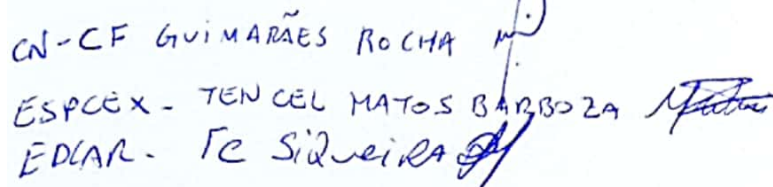 CN-CF GUIMARÃES ROCHA
ESPCEX - TEN CEL MATOS BARBOZA
EDCAR - TC SIQUEIRA